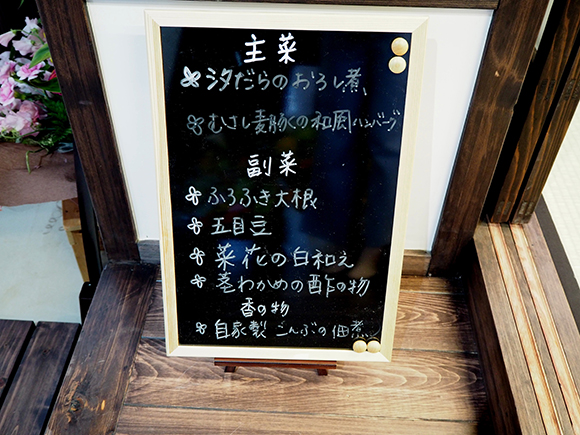 主菜
汐だらのおろし煮
むさし麦豚の和風ハンバーグ
副菜
ふろふき大根
五目豆
菜花の白和え
茎わかめの酢の物
香の物
自家製 こんぶの佃煮